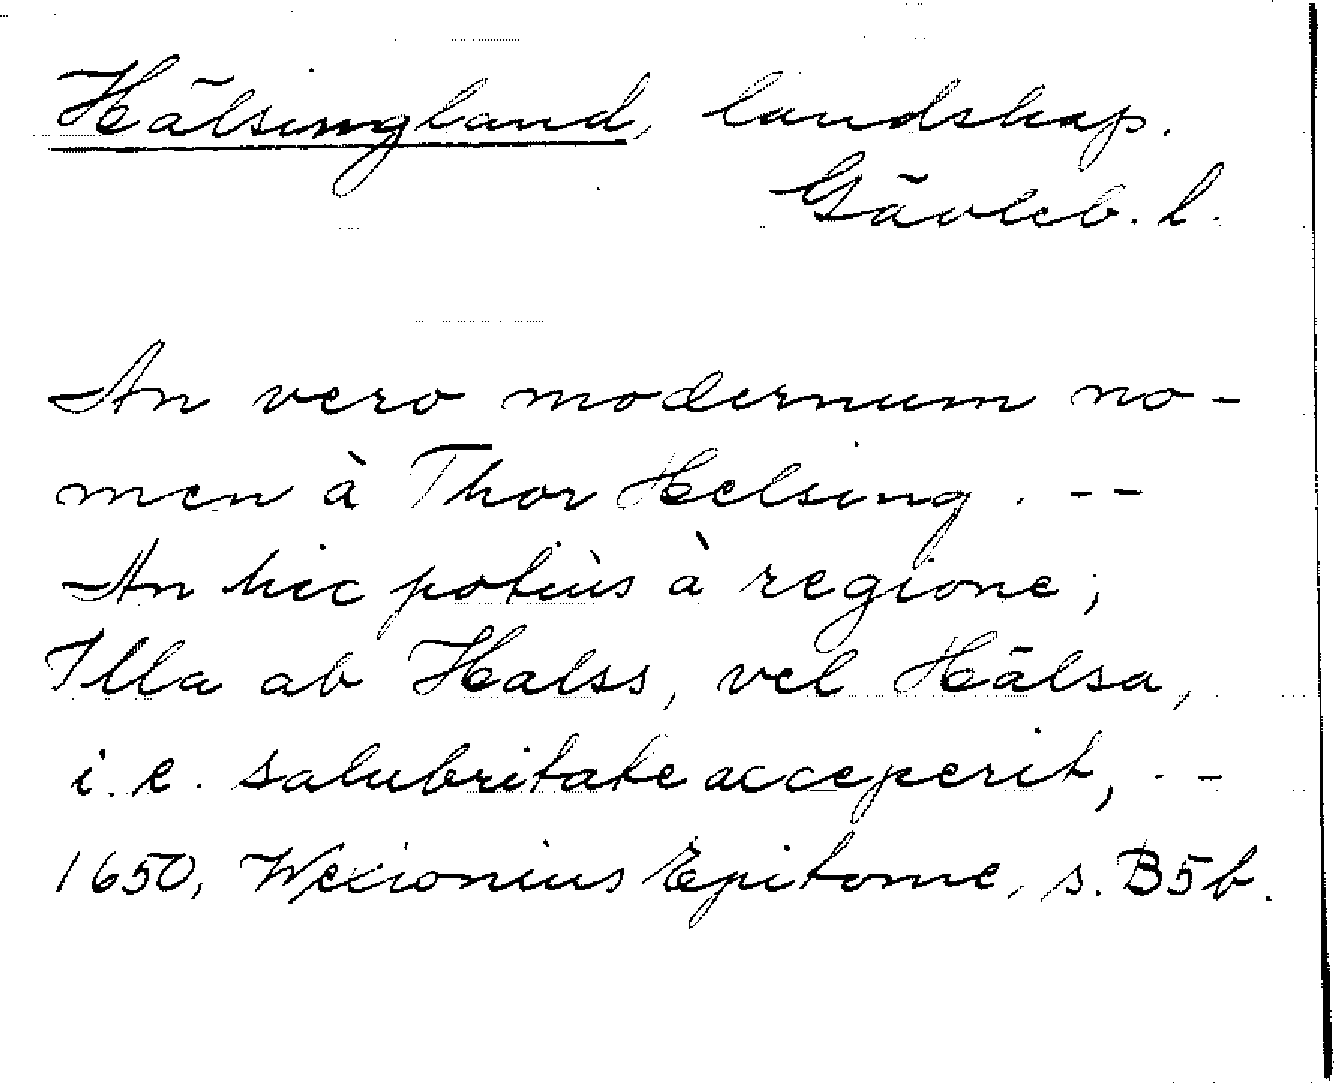 Hälsingland, landskap.
Gävleb. l.
An vero modernum no-
men à Thor Helsing. --
An hic potiùs à regione;
Illa ab Halss, vel Hälsa,
i.e. salubritate acceperit, --
1650, Wexionius Epitome, s. B5b.